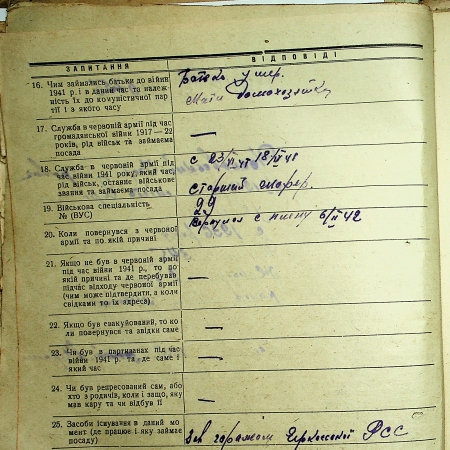 ЗАПИТАННЯ
ВІДПОВІДІ
16. Чим займались батьки до війни
1941 р. і в даний час та належ-
ність їх до комуністичної пар
тії і з якого часу
Батько умер.
Мати домохозяйка
17. Служба в червоній армії під час
громадянської війни 1917 — 22
років, рід військ та займаєма
посада
—
18. Служба в червоній армії під
час війни 1941 року, який час,
рід військ, останнє військове
звання та займаєма посада
с 23/VI 41 18/
старший шофер.
19. Військова спеціальність
№ (ВУС)
29
20. Коли повернувся з червоної
армії та по якій причині
Вернулся с плену 6/II 42
21. Якщо не був в червоній армії
під час війни 1941 р., то по
якій причині та де перебував
підчас відходу червоної армії
(чим може підтвердити, а коли
свідками то їх адреса)
—
22. Якщо був евакуйований, то ко
ли повернувся та звідки саме
—
23. Чи був в партизанах під час
війни 1941 р. та де саме і
який час
—
24. Чи був репресований сам, або
хто з родичів, коли і защо, яку
мав кару та чи відбув її
—
25. Засоби існування в даний мо
мент (де працює і яку займає
посаду)
Зав гаражом Черкасской РСС